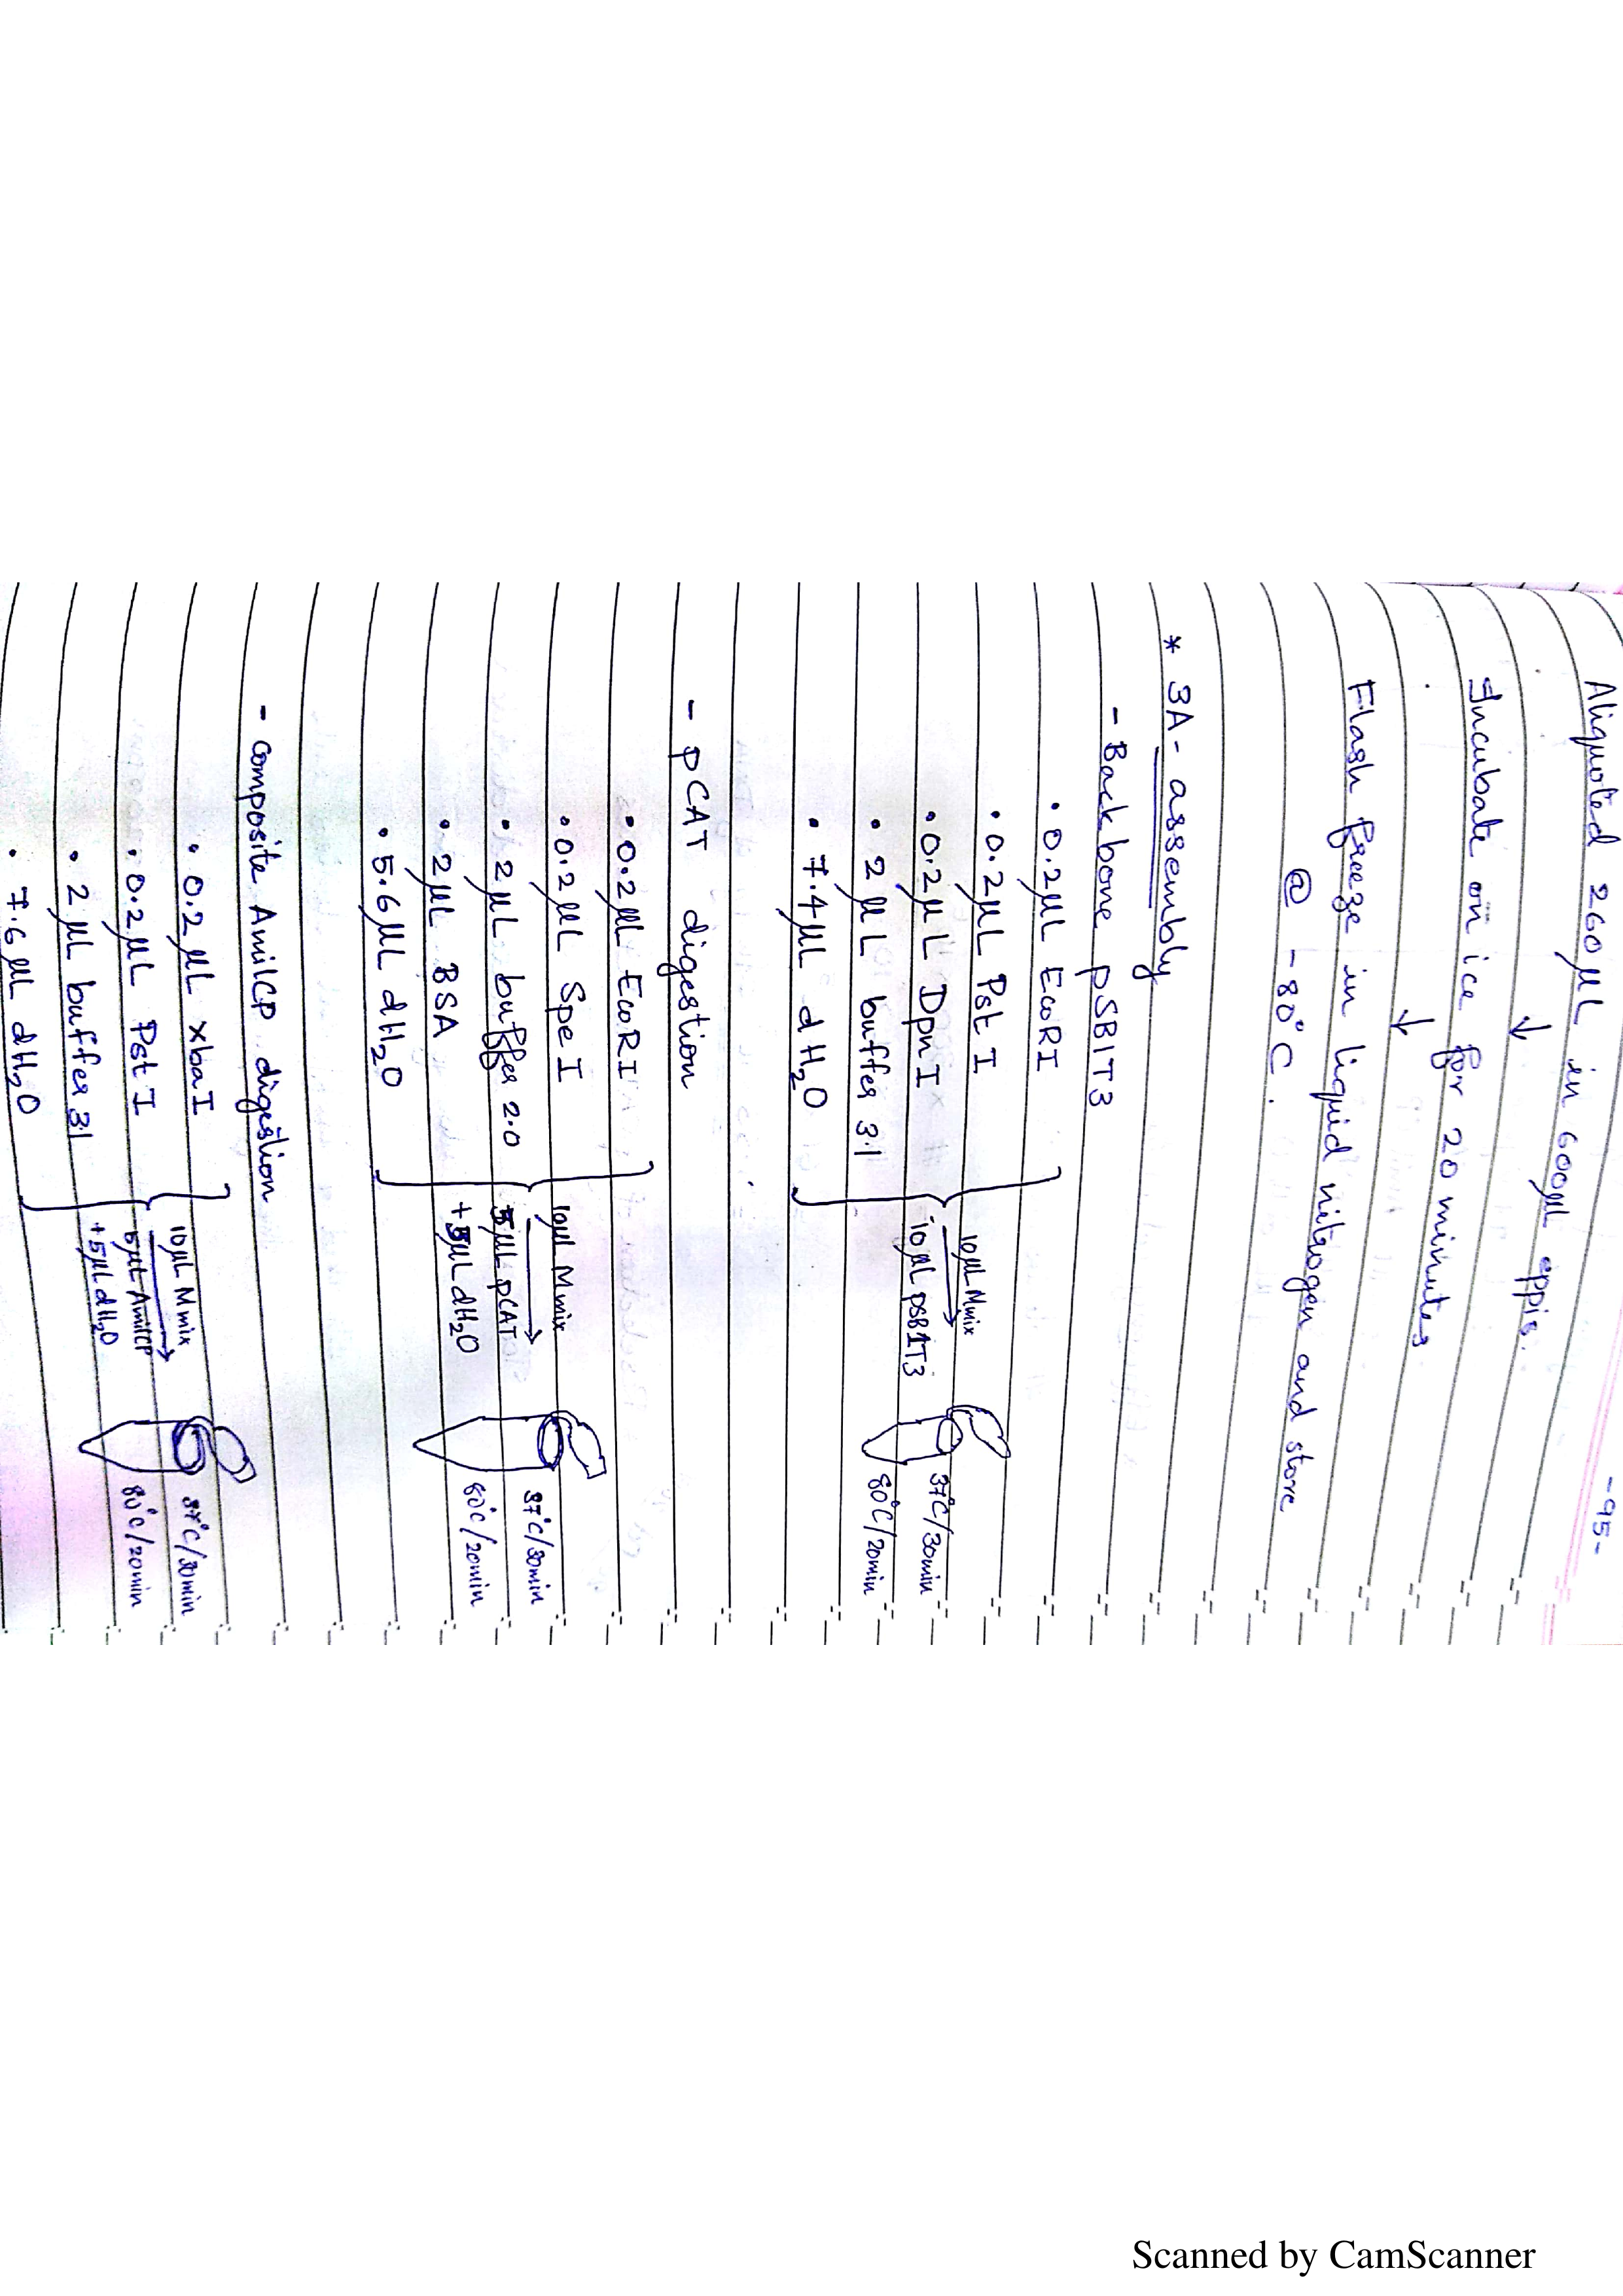 -95-
Aliquoted 260µL in 600µL eppis.
↓
Incubate on ice for 20 minutes
↓
Flash freeze in liquid nitrogen and store
@ -80°C.
* 3A- assembly
- Backbone pSB1T3
• 0.2µL EcoRI
• 0.2µL Pst I
• 0.2µL Dpn I
• 2µL buffer 3.1
• 7.4µL dH₂O
10µL Mmix
10µL pSB1T3
37°C/30min
80°C/20min
- pCAT digestion
• 0.2µL EcoRI
• 0.2µL Spe I
• 2µL buffer 2.0
• 2µL BSA
• 5.6µL dH₂O
10µL Mmix
5µL pCAT
+5µL dH₂O
37°C/30min
80°C/20min
- composite AmilCP digestion
• 0.2µL xbaI
• 0.2µL Pst I
• 2µL buffer 3.1
• 7.6µL dH₂O
10µL Mmix
5µL AmilCP
+5µL dH₂O
37°C/30min
80°C/20min
Scanned by CamScanner